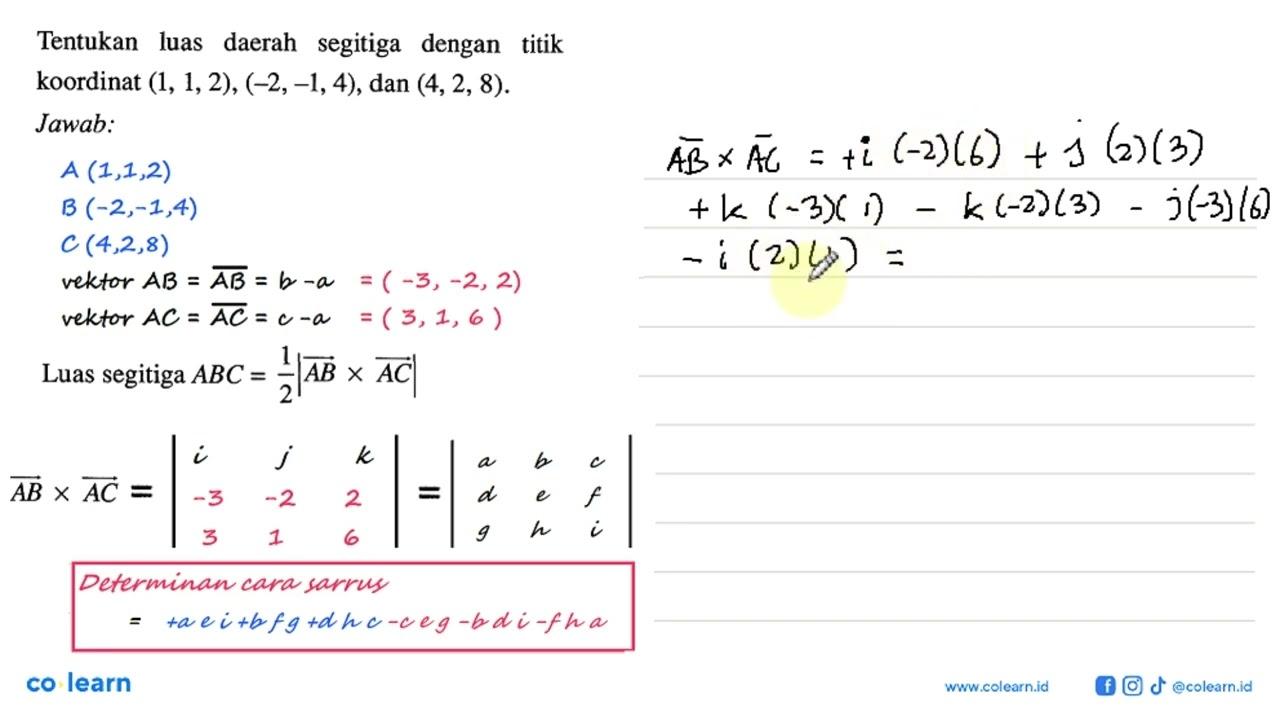 Tentukan luas daerah segitiga dengan titik
koordinat (1, 1, 2), (–2, –1, 4), dan (4, 2, 8).
Jawab:
A (1,1,2)
B (-2,-1,4)
C (4,2,8)
vektor AB = AB = b -a = ( -3, -2, 2)
vektor AC = AC = c -a = ( 3, 1, 6 )
Luas segitiga ABC = 1/2 |AB × AC|
AB × AC = | i j k | = | a b c |
-3 -2 2 d e f
3 1 6 g h i
Determinan cara sarrus
= +a e i +b f g +d h c -c e g -b d i -f h a
AB × AC = +i (-2)(6) + j (2)(3)
+ k (-3)(1) - k (-2)(3) - j(-3)(6)
- i (2)(1) =
co learn
www.colearn.id
@colearn.id